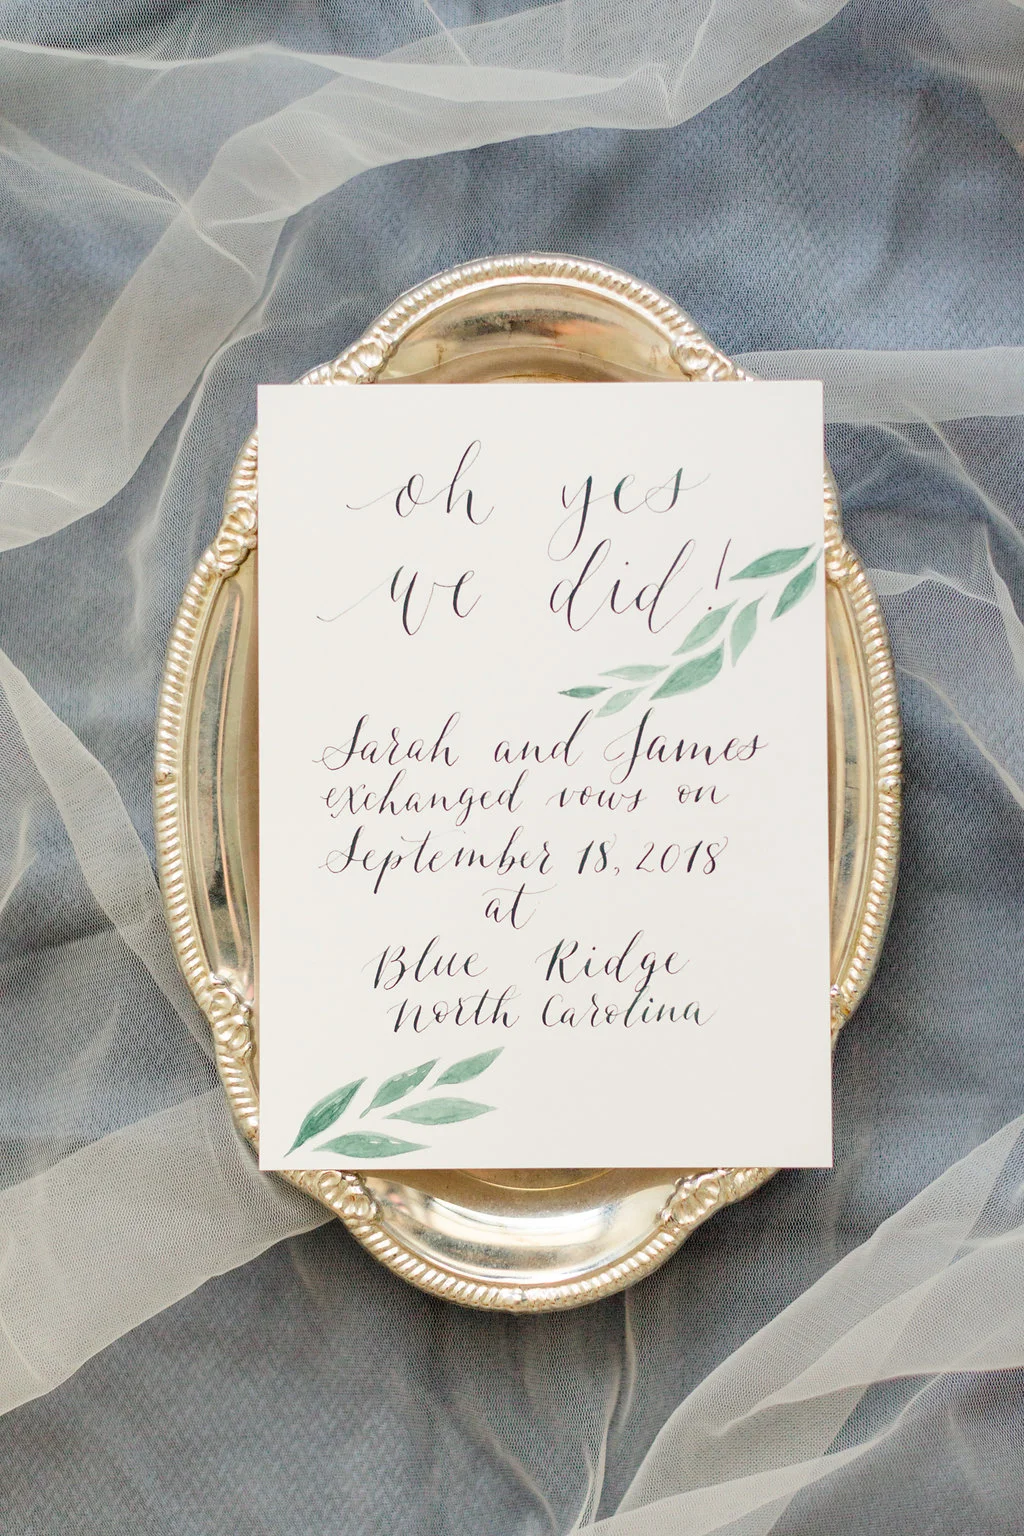 oh yes
we did!
Sarah and James
exchanged vows on
September 18, 2018
at
Blue Ridge
North Carolina